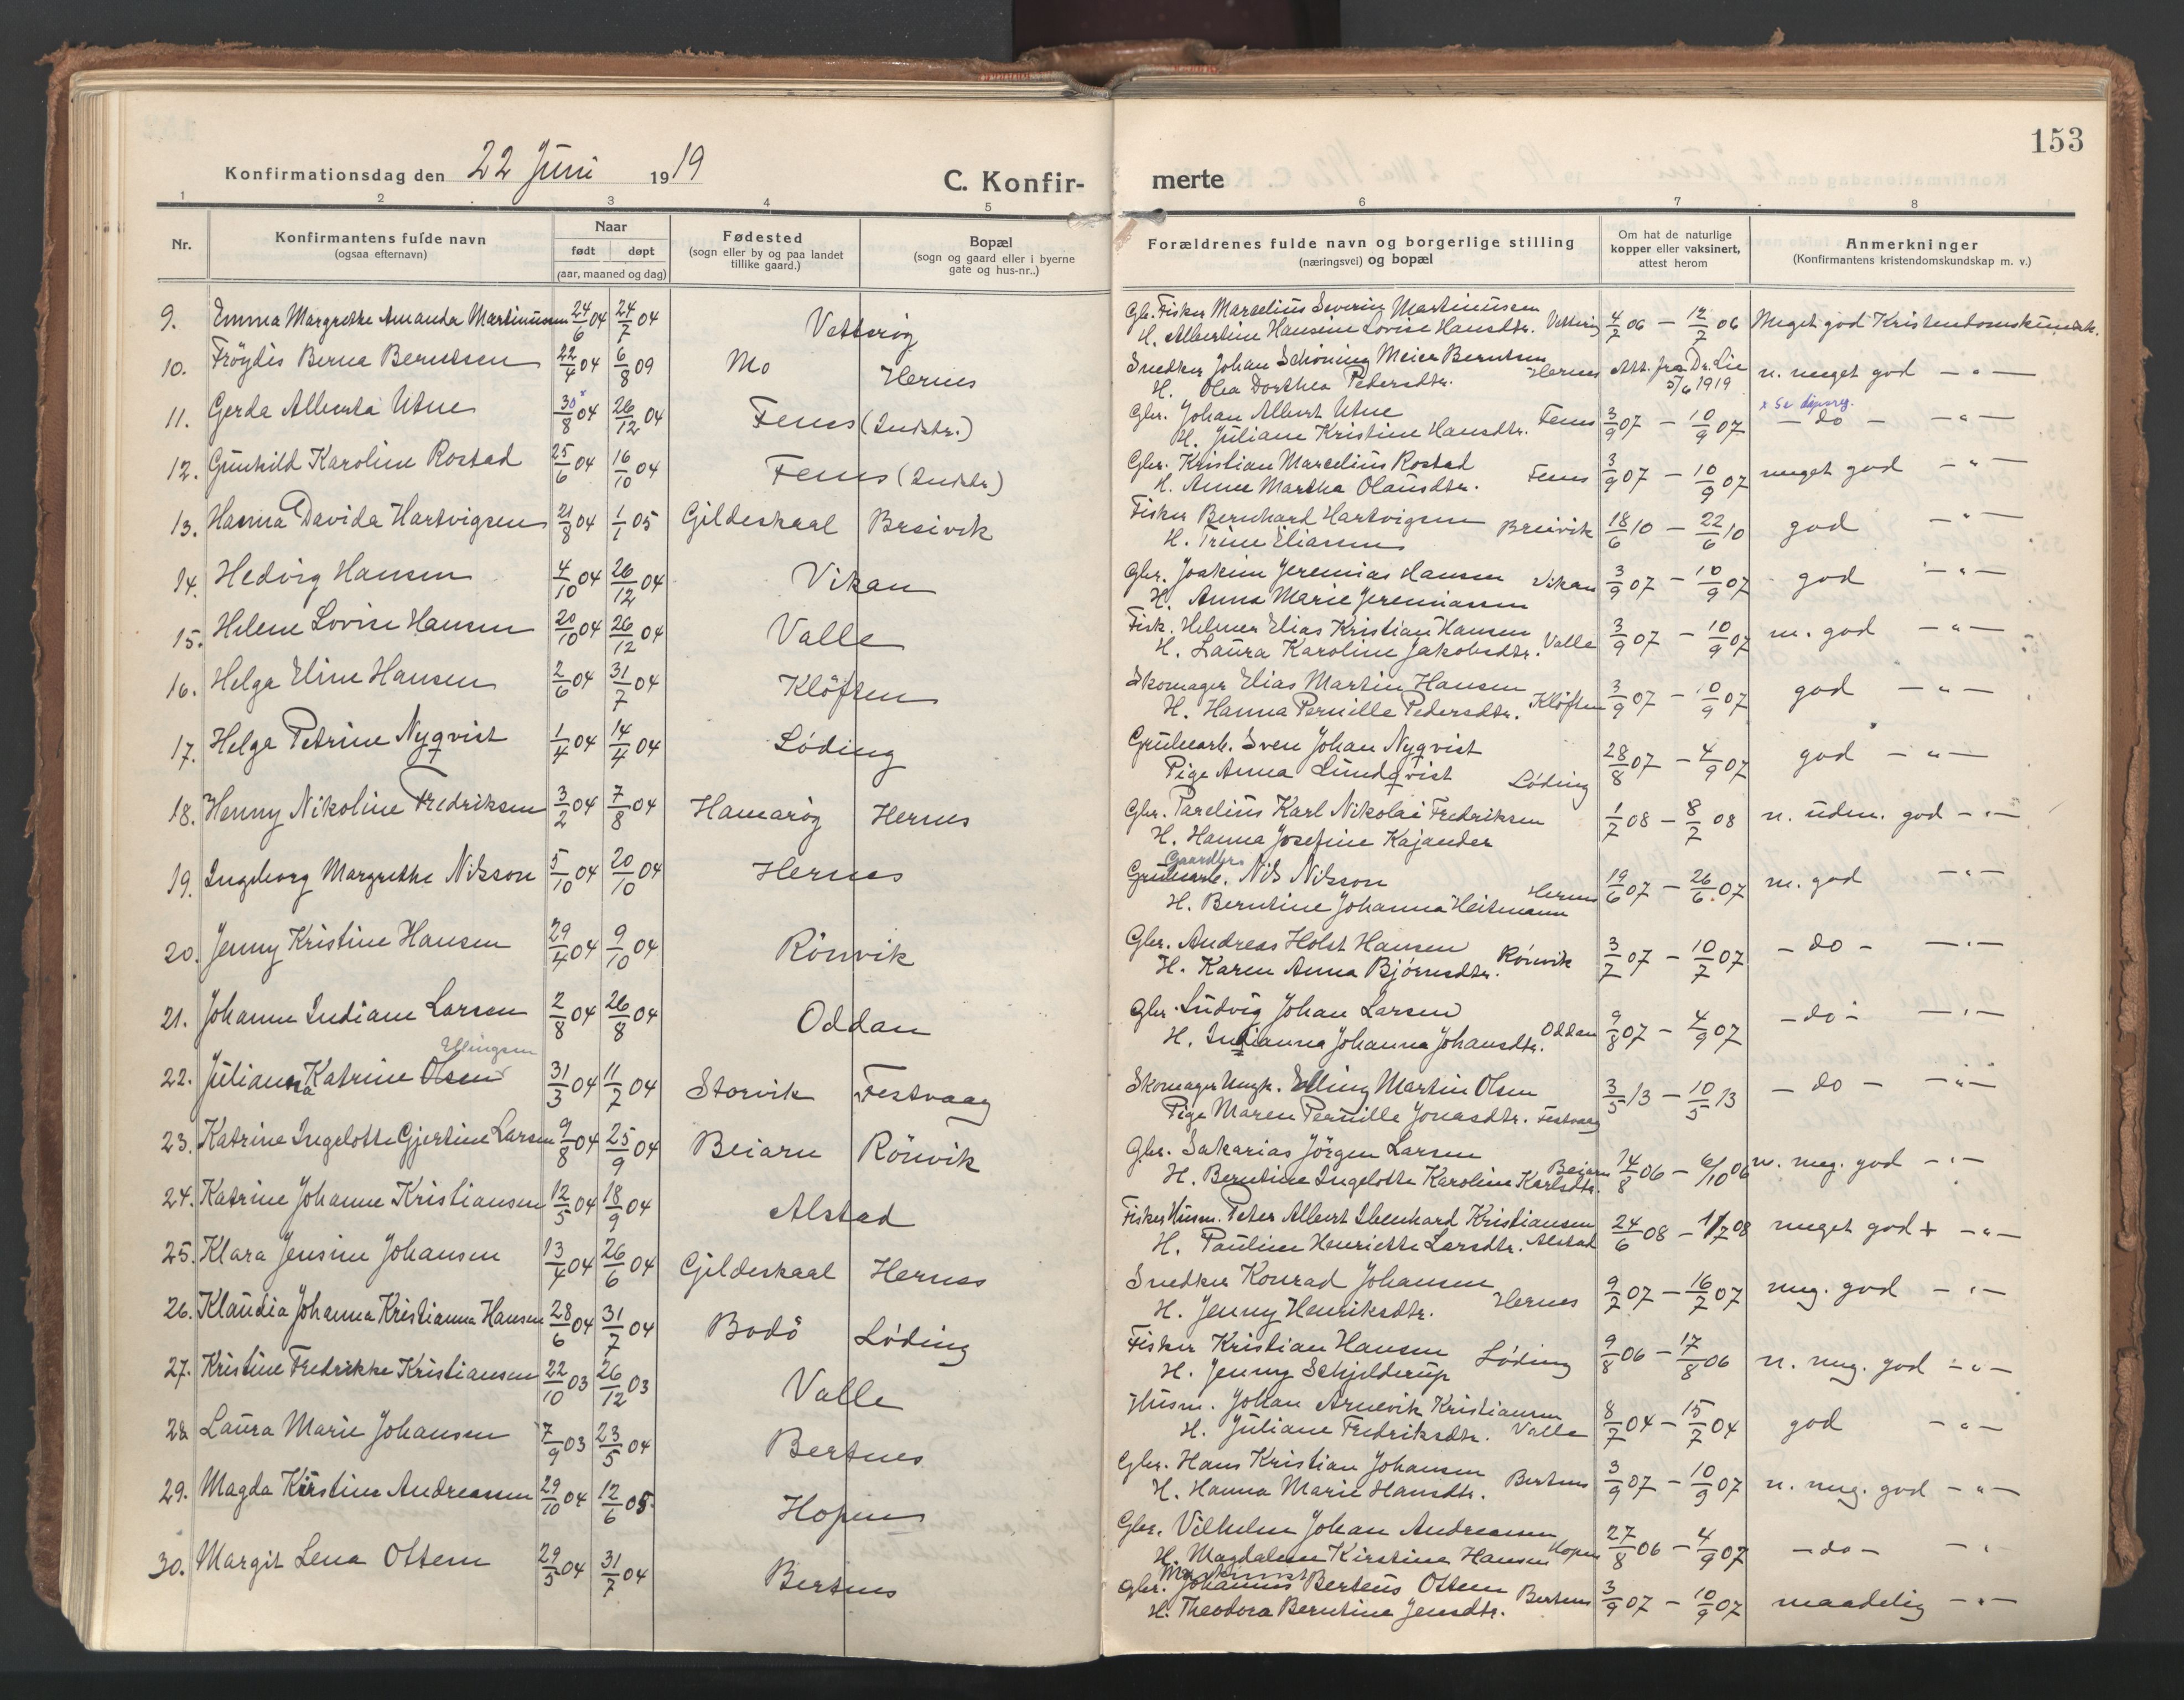 153
Konfirmationsdag den 22 Juni 1919
C. Konfir-
merte
1 2 3 4 5 6 7 8
Nr.
Konfirmantens fulde navn
(ogsaa efternavn)
Naar
født døpt
(aar, maaned og dag)
Fødested
(sogn eller by og paa landet
tillike gaard.)
Bopæl
(sogn og gaard eller i byerne
gate og hus-nr..)
Forældrenes fulde navn og borgerlige stilling
(næringsvei) og bopæl
Om hat de naturlige
kopper eller vaksinert,
attest herom
Anmerkninger
(Konfirmantens kristendomskundskap m. v.)
9. Emma Margrethe Amanda Martinussen 24/6 04 24/7 04 Vetterøg
Gb. Fisker Marselius Severin Martinussen
H. Albertine Hansine Lovise Hansdtr. Vetterøg 4/7 06 – 12/7 06 Meget god Kristendomskundsk.
10. Fröydis Berna Berntsen 22/4 04 6/8 09 Mo Hernes
Snedker Johan Schöning Meier Berntsen
H. Olea Dorthea Pedersdtr. Hernes Att. fra Dr. Lie 5/6 1919 n. meget god – " –
11. Gerda Alberta Utne 30/8 04 26/12 04 Fenes (Indstr.)
Gbr. Johan Albert Utne
H. Juliane Kristine Hansdtr. Fenes 3/9 07 – 10/9 07 x Se dåpsreg. – do – – " –
12. Gunhild Karoline Rostad 25/6 04 16/10 04 Fenes (Indstr.)
Gbr. Kristian Marselius Rostad
H. Anne Martha Olausdtr. Fenes 3/9 07 – 10/9 07 meget god – " –
13. Hanna Davida Hartvigsen 21/8 04 1/1 05 Gildeskaal Breivik
Fisker Bernhard Hartvigsen
H. Trine Eliassen Breivik 18/6 10 – 22/6 10 god – " –
14. Hedvig Hansen 4/10 04 26/12 04 Vikan
Gbr. Joakim Jeremias Hansen
H. Anna Marie Jeremiassen Vikan 3/9 07 – 10/9 07 god – " –
15. Helene Lovise Hansen 20/10 04 26/12 04 Valle
Fisk. Helmer Elias Kristian Hansen
H. Laura Karoline Jakobsdtr. Valle 3/9 07 – 10/9 07 m. god – " –
16. Helga Eline Hansen 2/6 04 31/7 04 Klöften
Skomager Elias Martin Hansen
H. Hanna Pernille Pedersdtr. Klöften 3/9 07 – 10/9 07 god – " –
17. Helga Petrine Nyqvist 1/4 04 14/4 04 Løding
Grubearb. Sven Johan Nyqvist
Pige Anna Lundqvist Løding 28/8 07 – 4/9 07 god – " –
18. Henny Nikoline Fredriksen 3/2 04 7/8 04 Hamarøy Hernes
Gbr. Parelius Karl Nikolai Fredriksen
H. Hanna Josefine Kajander 1/7 08 – 8/7 08 n. udm. god – " –
19. Ingeborg Margrethe Nilsson 5/10 04 20/10 04 Hernes
Gaardbr.
Grubearb. Nils Nilsson
H. Berntine Johanna Heitmann Hernes 19/6 07 – 26/6 07 m. god – " –
20. Jenny Kristine Hansen 29/4 04 9/10 04 Rönvik
Gbr. Andreas Holst Hansen
H. Karen Anna Bjørnsdtr. Rönvik 3/7 07 – 10/7 07 – do – – " –
21. Johanne Indiane Larsen 2/8 04 26/8 04 Oddan
Gbr. Ludvig Johan Larsen
H. Indianna Johanna Johansdtr. Oddan 9/8 07 – 4/9 07 – do – – " –
Ellingsen
22. Julianna Katrine Olsen 31/3 04 11/7 04 Storvik Festvaag
Skomager Ungk. Elling Martin Olsen
Pige Maren Pernille Jonasdtr. Festvaag 3/5 13 – 10/5 13 – do – – " –
23. Katrine Ingelotte Gjertine Larsen 9/8 04 25/9 04 Beiarn Rönvik
Gbr. Sakarias Jörgen Larsen
H. Berntine Ingelotte Karoline Karlsdtr. Beiarn 14/8 06 – 6/10 06 n. meg. god – " –
24. Katrine Johanne Kristiansen 12/5 04 18/9 04 Alstad
Fisker Husm. Peter Albert Ibenhard Kristiansen
H. Pauline Henriette Larsdtr. Alstad 24/6 08 – 1/7 08 meget god + – " –
25. Klara Jensine Johansen 13/4 04 26/6 04 Gildeskaal Hernes
Snedker Konrad Johansen
H. Jenny Henriksdtr. Hernes 9/7 07 – 16/7 07 meg. god – " –
26. Klaudia Johanna Kristianna Hansen 28/6 04 31/7 04 Bodö Løding
Fisker Kristian Hansen
H. Jenny Schjelderup Løding 9/8 06 – 17/8 06 n. meg. god – " –
27. Kristine Fredrikke Kristiansen 22/10 03 26/12 03 Valle
Husm. Johan Arnevik Kristiansen
H. Juliane Fredriksdtr. Valle 8/7 04 – 15/7 04 god – " –
28. Laura Marie Johansen 7/9 03 23/5 04 Bertnes
Gbr. Hans Kristian Johansen
H. Hanna Marie Hansdtr. Bertnes 3/9 07 – 10/9 07 n. meg. god – " –
29. Magda Kirstine Andreassen 29/10 04 12/6 05 Hopen
Gbr. Vilhelm Johan Andreassen
H. Magdalena Kirstine Hansen Hopen 27/8 06 – 4/9 07 – do – – "
30. Margit Lena Ottem 29/5 04 31/7 04 Bertnes
Gbr. Johannes Berteus Ottem Bertnes
H. Theodora Berntine Jensdtr. 3/9 07 – 10/9 07 maadelig – " –